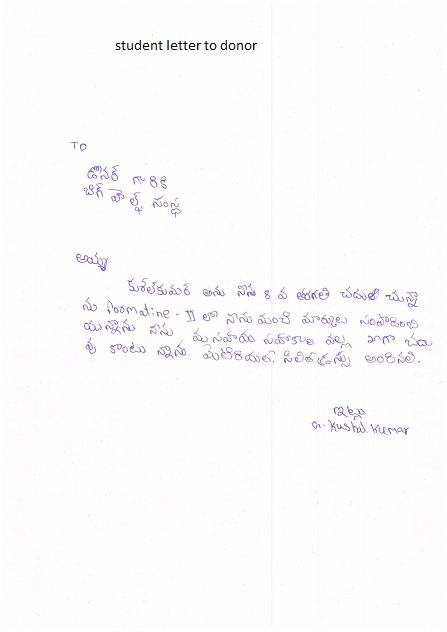 student letter to donor
TO
డొనర్ గారికి
బిగ్ హెల్ప్ సంస్థ
అయ్యా
కుశల్‌కుమర్ అను నేను 8 వ తరగతి చదువుచున్నా
ను Formative - II లో నేను మంచి మార్కులు సంపాదించి
యున్నాను నేను మీ సహాయ సహకాల వల్ల బాగా చదు
వు కొంటు న్నాను. మెటీరియల్.
ఇట్లు
Ch. Kushal Kumar